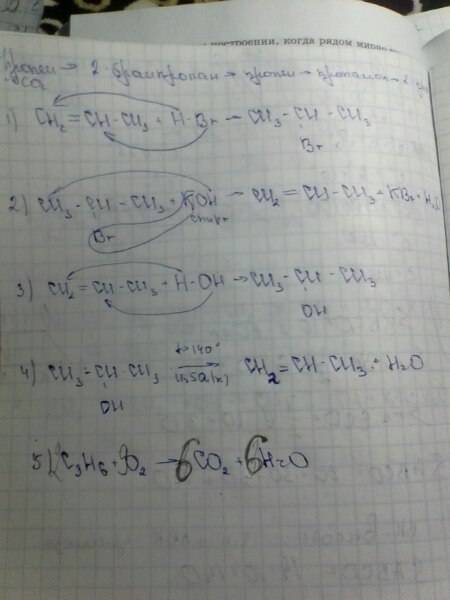 построении, когда рядом
пропен → 2-бромпропан → пропен → пропанол-2
CO2
1) CH2 = CH-CH3 + H-Br → CH3-CH-CH3
Br
2) CH3-CH-CH3 + KOH → CH2 = CH-CH3 + KBr + H2O
Br спирт
3) CH2 = CH-CH3 + H-OH → CH3-CH-CH3
OH
4) CH3-CH-CH3 t>140° H2SO4(к) → CH2=CH-CH3 + H2O
OH
5) 2C3H6 + 9O2 → 6CO2 + 6H2O